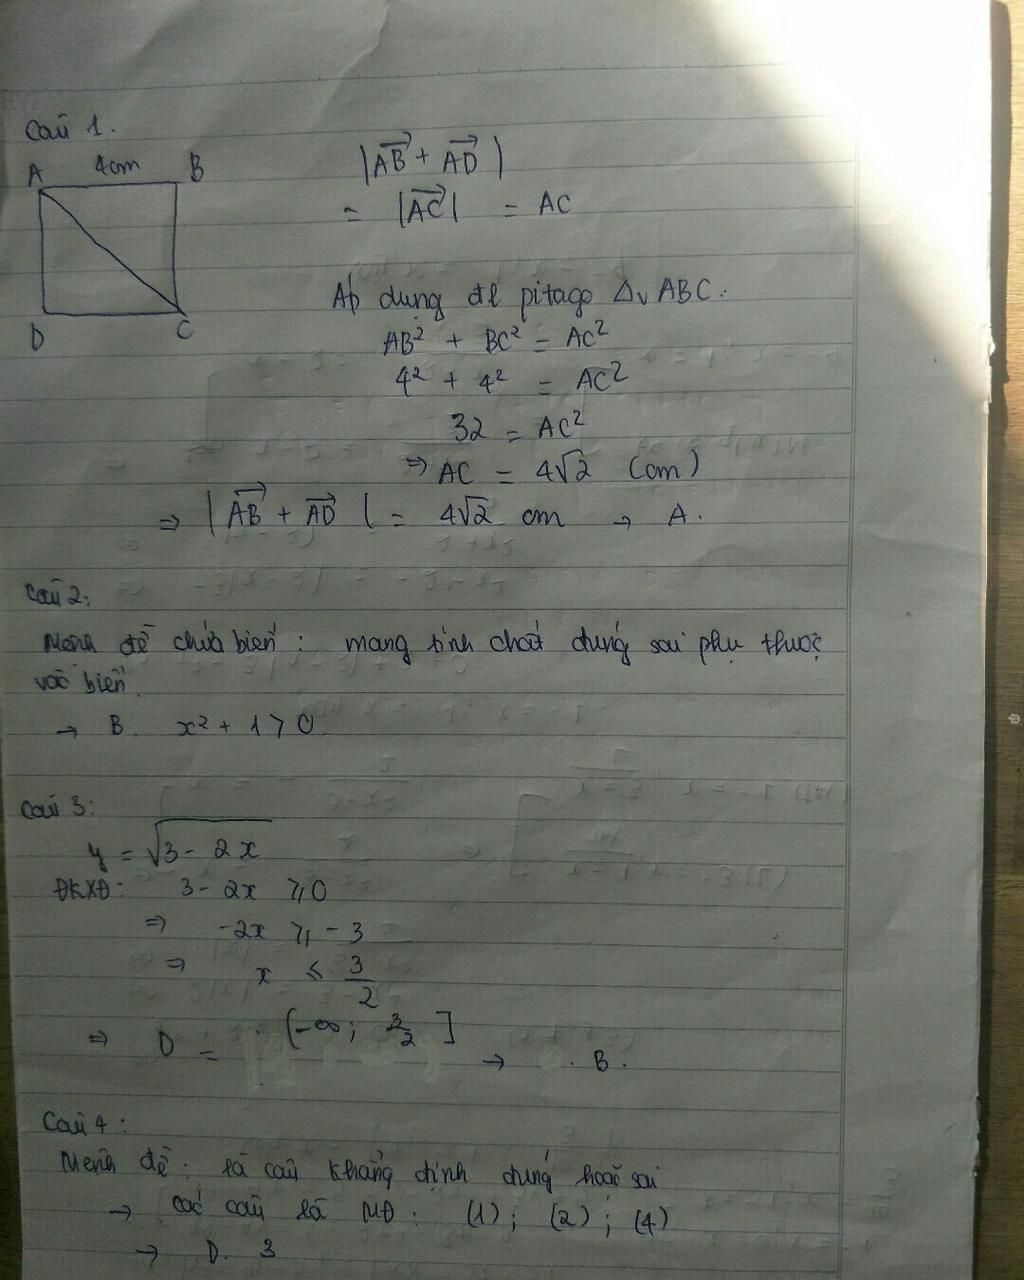 Câu 1.
A 4cm B
D C
|AB→ + AD→|
= |AC→| = AC
Áp dụng đl pitago Δv ABC:
AB² + BC² = AC²
4² + 4² = AC²
32 = AC²
⇒ AC = 4√2 (cm)
⇒ |AB→ + AD→| = 4√2 cm → A.
Câu 2:
Mệnh đề chứa biến: mang tính chất đúng sai phụ thuộc
vào biến.
→ B. x² + 1 > 0
Câu 3:
y = √3 - 2x
ĐKXĐ: 3 - 2x ≥ 0
⇒ -2x ≥ -3
⇒ x ≤ 3/2
⇒ D = (-∞; 3/2] → B.
Câu 4:
Mệnh đề: là câu khẳng định đúng hoặc sai
→ các câu là MĐ: (1); (2); (4)
→ D. 3